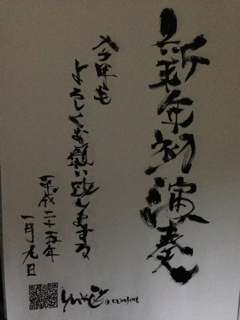 新年初演奏
今年も
よろしくお願い致しまする
平成二十五年
一月九日